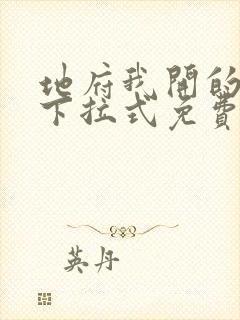 地府我开的
下拉式免费
英丹